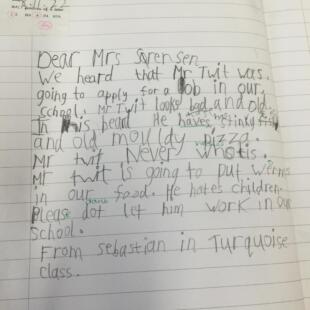 Dear Mrs Sorensen
We heard that Mr Twit was.
going to apply for a Job in our
school. Mr Twit looks bad and old.
In his beard He haves stinky fish
and old mouldy pizza.
Mr twit Never
Mr twit is going to put werms
in our food. He hates children.
Please dot let him work in our
School.
From sebastian in Turquoise
class.